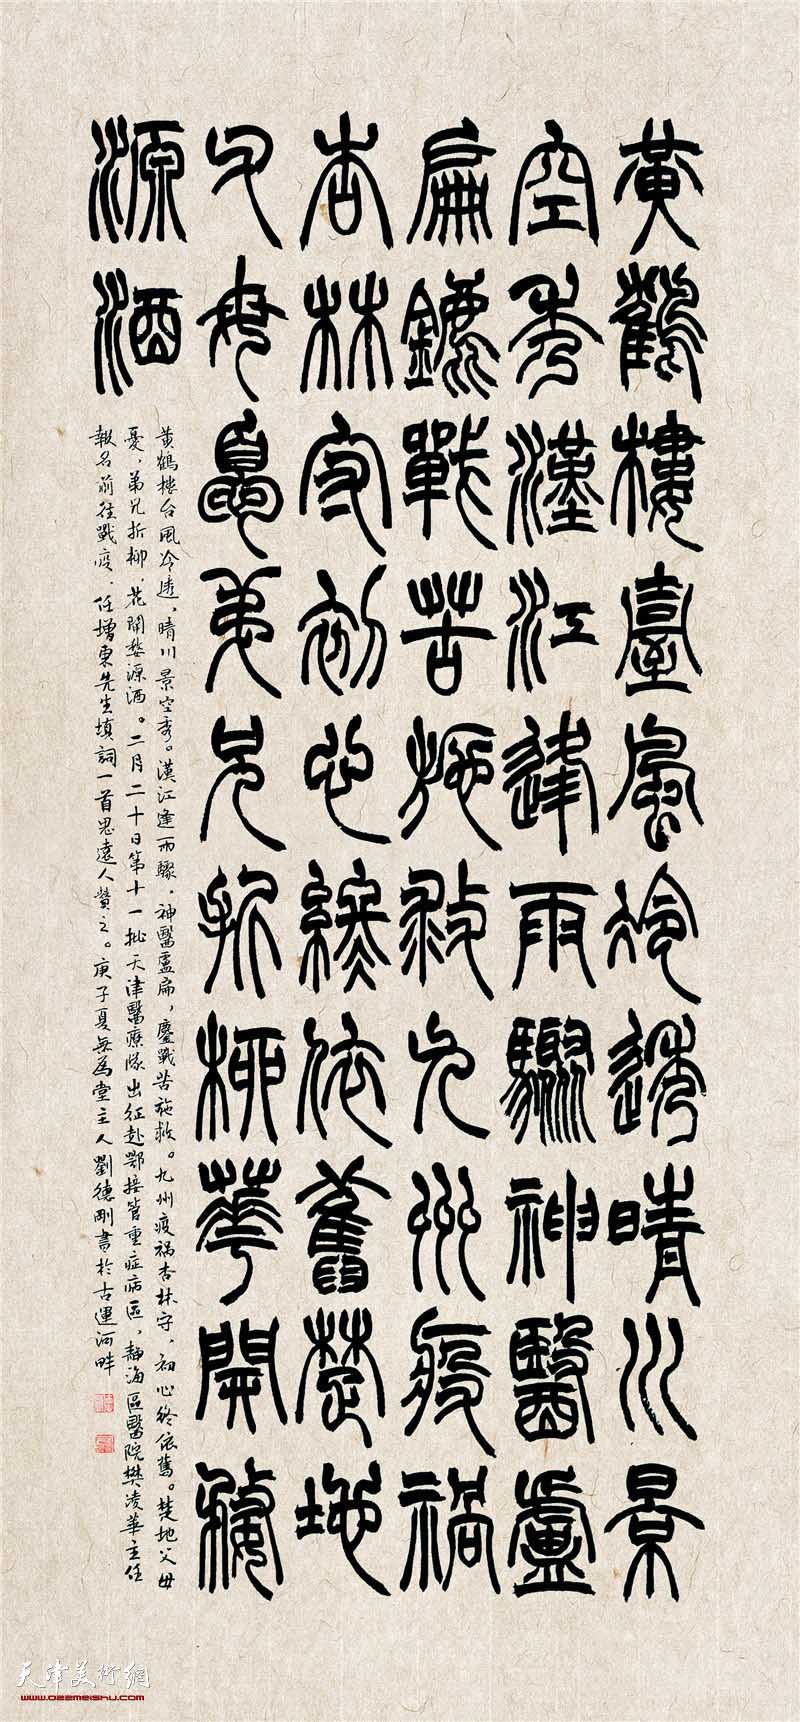 黃鶴樓臺風冷透晴川景
空秀漢江逢雨驟神醫盧
扁鏖戰苦施救九州疫禍
杏林守初心終依舊楚地
父母憂弟兄折柳華開婺
源酒
黃鶴樓台風冷透，晴川景空秀。漢江逢雨驟，神醫盧扁，鏖戰苦施救。九州疫禍杏林守，初心終依舊。楚地父母
憂，弟兄折柳，花開婺源酒。二月二十日第十一批天津醫療隊出征赴鄂接管重症病區，靜海區醫院樊凌華主任
報名前往戰疫，任增東先生填詞一首思遠人贊之。庚子夏無為堂主人劉德剛書於古運河畔
天津美術網
www.022meishu.com